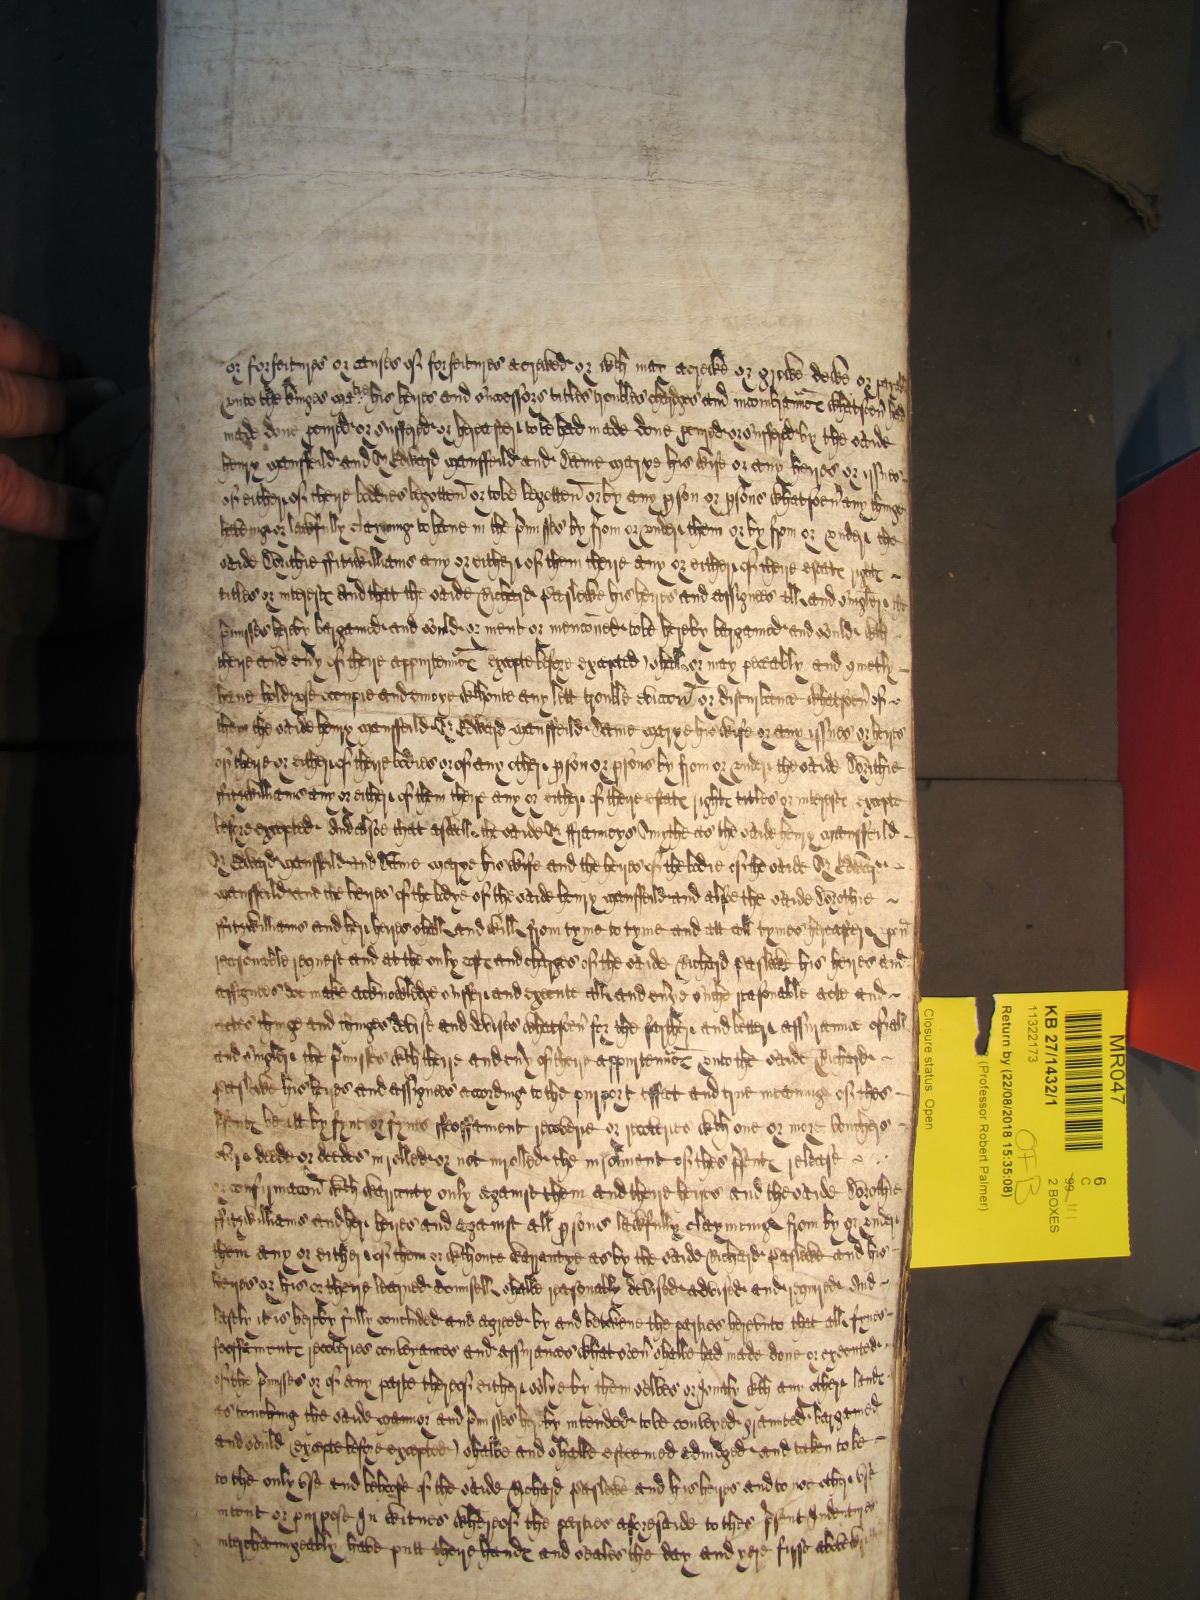 or forfeitures or causes of forfeitures accrewed or wch may accrewe or growe dewe or
unto the Kinges matie his heires and successors titles trobles charges and incombrances whatsoever had
made done comitted or suffered or hereafter to be had made done comitted or suffered by the saide
henry mansfeild and Sr Edward mansfeild and Dame marye his wife or any heires or issues
of either of theire bodies begotten or to be begotten or by any pson or psons whatsoever any thinge
haveinge or lawfully clayming to have in the pmisses by from or under them or by from or under the
saide Dorithie ffitzwilliams any or either of them theire any or either of theire estate right
titles or interest And that the saide Richard Paslewe his heires and assignes all and singler the
pmisses hereby bargained and sould or ment or mencioned to be hereby bargained and sould wth
theire and evy of theire appurtennces (excepte before excepted) shall or may peceably and quietly
have hold use occupie and enioye wthoute any lett trouble eviccon or disturbance whatsoever of
them the saide henry mansfeild Sr Edward mansfeild Dame marye his wife or any issues or heires
of theire or either of theire bodies or of any other pson or psons by from or under the saide Dorithie
ffitzwilliams any or either of them theire any or either of theire estate right titles or interest excepte
before excepted And alsoe that aswell the saide Sr ffrancys Smythe as the saide henry mansfeild
Sr Edward mansfeild and Dame marye his wife and the heires of the bodie of the saide Sr Edward
mansfeild and the heires of the bodye of the saide henry mansfeild and alsoe the saide Dorothie
ffitzwilliams and her heires shall and will from tyme to tyme and att all tymes hereafter upon
reasonable request and at the only cost and charges of the saide Richard Paslewe his heires and
assignes doe make acknowledge suffer and execute all and evye suche reasonable acte and
actes thinge and thinges devise and devises whatsoever for the further and better assurance of all
and singler the pmisses wth theire and evy of theire appurtennces unto the saide Richard
Paslewe his heires and assignes according to the purport effect and true meaninge of thes
psents be itt by fyne or fynes feoffament recoverie or recoveries wth one or more vouchers
over deede or deedes inrolled or not inrolled the inrolment of thes psents release
or confirmacon wth warranty only against them and theire heires and the saide Dorothie
ffitzwilliams and her heires and against all psons lawfully claymeinge from by or under
them any or either of them or wthoute warrantye as by the saide Richard Paslewe and his
heires or his or theire learned counsell shalbe reasonably devised advised and required And
lastly it is hereby fully concluded and agreed by and betwene the parties hereunto that all fynes
feoffaments recoveries conveyances and assurances whatsoever shalbe had made done or executed
of the pmisses or of any parte thereof either solye by them selves or joyntly wth any other lands
as touching the saide mannor and pmisses hereby intended to be conveyed graunted bargained
and sould (excepte before excepted) shalbe and shalbe esteemed adiudged and taken to be
to the only use and behoofe of the saide Richard Paslewe and his heires and to noe other use
intent or purpose In witnes whereof the parties aforesaide to thes psent Indentures
interchaungeably have putt theire hands and seales the day and yere first above
MR047
6
C
99
2 BOXES
KB 27/1432/1
11322173
Return by (22/08/2018 15:35:08)
(Professor Robert Palmer)
Closure status: Open